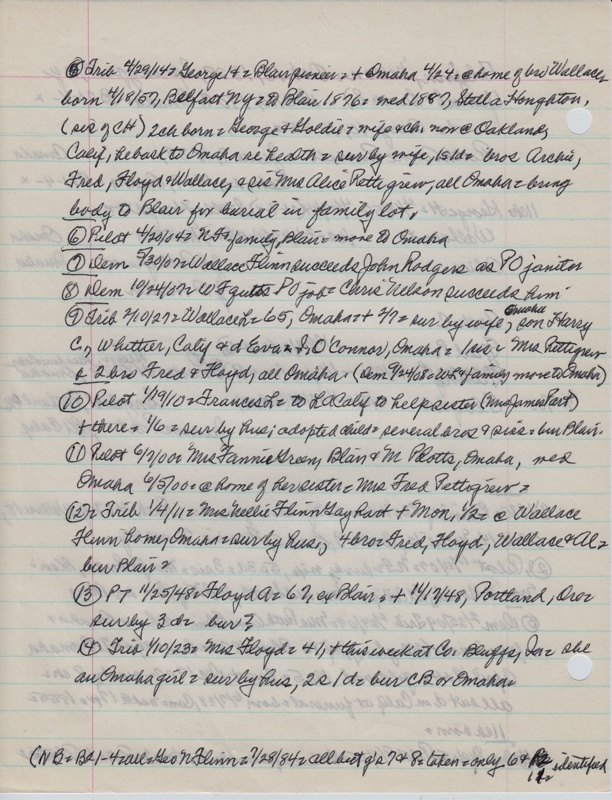 ⑤ Trib 4/29/14 = George H = Blair pioneer = + Omaha 4/24 = @ home of bro Wallace,
born 4/18/57, Belfast Ny = to Blair 1876 = med 1887, Stella Houghton,
(sis of CH) 2ch born = George & Goldie = wife & chi now @ Oakland,
Calif, he back to Omaha re health = sur by wife, 1s 1d = bros Archie,
Fred, Floyd & Wallace, & sis Mrs Alice Pettigrew, all Omaha = bring
body to Blair for burial in family lot,
⑥ Pilot 4/20/04 = & family, Blair = move to Omaha
⑦ Dem 5/30/07 = Wallace Flinn succeeds John Rodgers as PO janitor
⑧ Dem 10/24/07 = WF quits PO job = Chris Nelson succeeds him
⑨ Trib 2/10/27 = Wallace L = 65, Omaha = + 2/7 = sur by wife, Omaha son Harry
C., Whittier, Caly & d Eva = O'Connor, Omaha = 1 sis = Mrs Pettigrew
& 2 bro Fred & Floyd, all Omaha. (Dem 9/24/08 = WF & family move to Omaha)
⑩ Pilot 1/19/10 = Frances L = to LA Caly to help sister (Mrs James Part)
+ there = 1/6 = sur by hus; adopted child = several bros & sis = bur Blair.
⑪ Pilot 6/7/00 = Mrs Fannie Green, Blair & M Plotts, Omaha, med
Omaha 6/5/00 = @ home of her sister = Mrs Fred Pettigrew =
⑫ = Trib 1/4/11 = Mrs Nellie Flinn Gayhart + Mon, 1/2 = @ Wallace
Flinn home, Omaha = sur by hus, 4 bro = Fred, Floyd, Wallace & Al =
bur Blair =
⑬ PT 1/25/48 = Floyd A = 67, ex Blair = + 1/17/48, Portland, Ore =
sur by 3 d = bur?
⑭ Trib 1/10/23 = Mrs Floyd = 41, + this week at Co. Bluffs, Ia = she
an Omaha girl = sur by hus, 2 s 1 d = bur CB or Omaha =
(NB = B21-4 = all = Geo N Flinn = 7/28/84 = all but g's 7 & 8 = taken = only 6 & identified